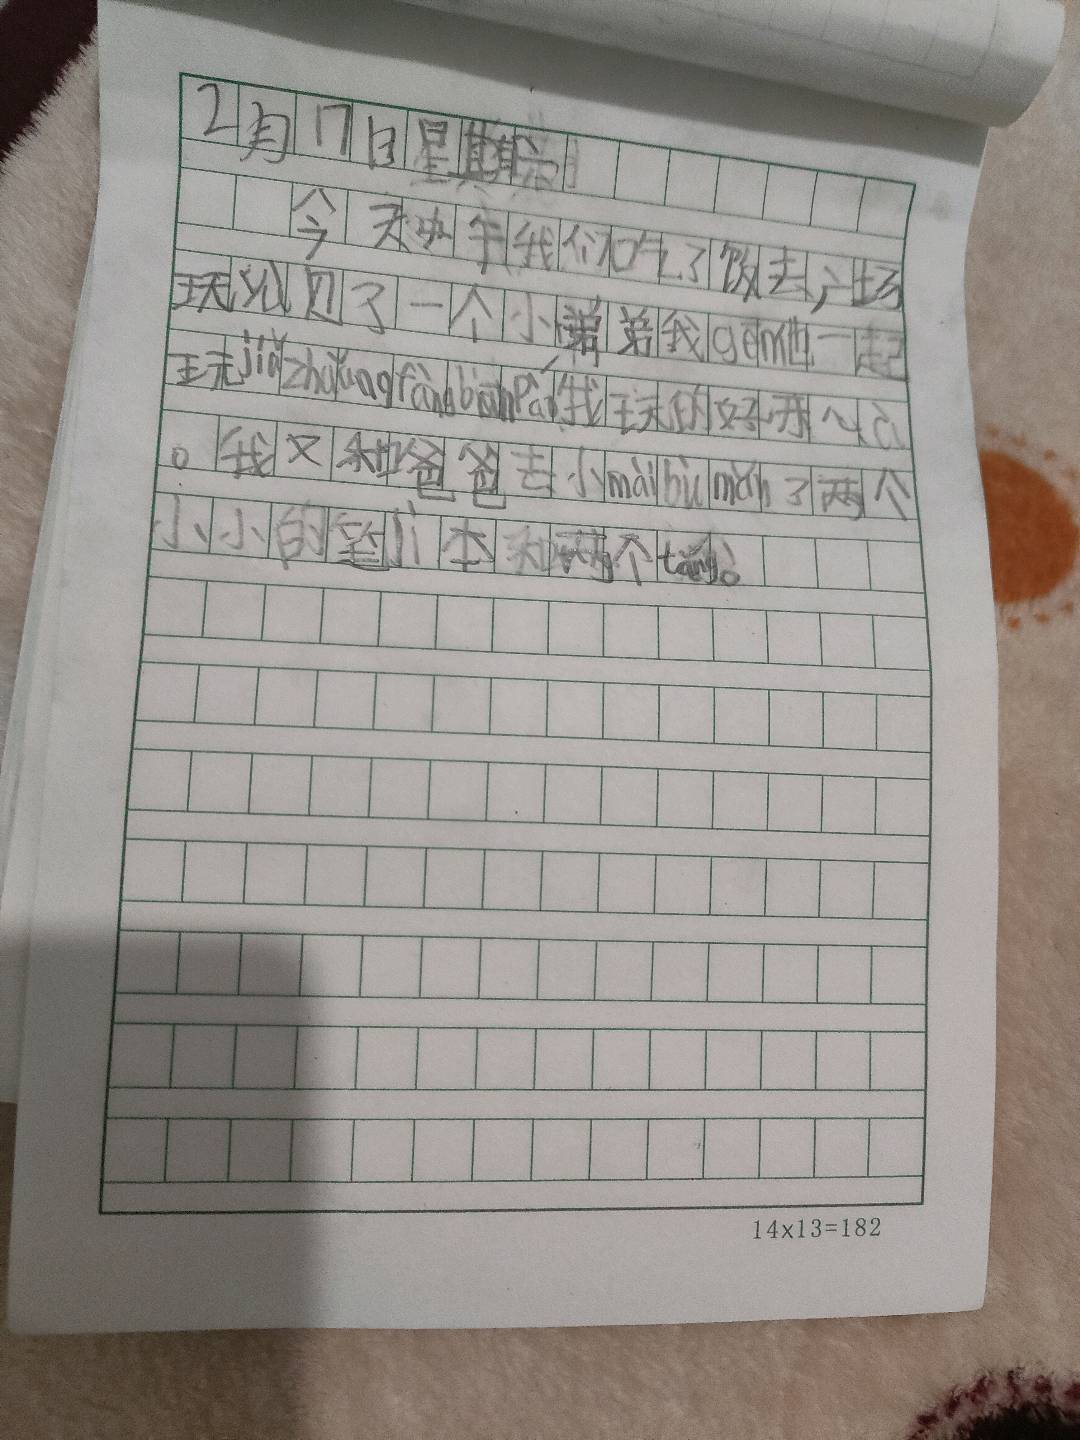 2月17日星期
今天中午我们吃了饭去广场
玩看见了一个小弟弟我gēn他一起
玩jiǎzhuāngfàngbiānpào我玩的好开心啊
。我又和爸爸去小màibùmǎi了两个
小小的笔jì本和两个táng。
14x13=182